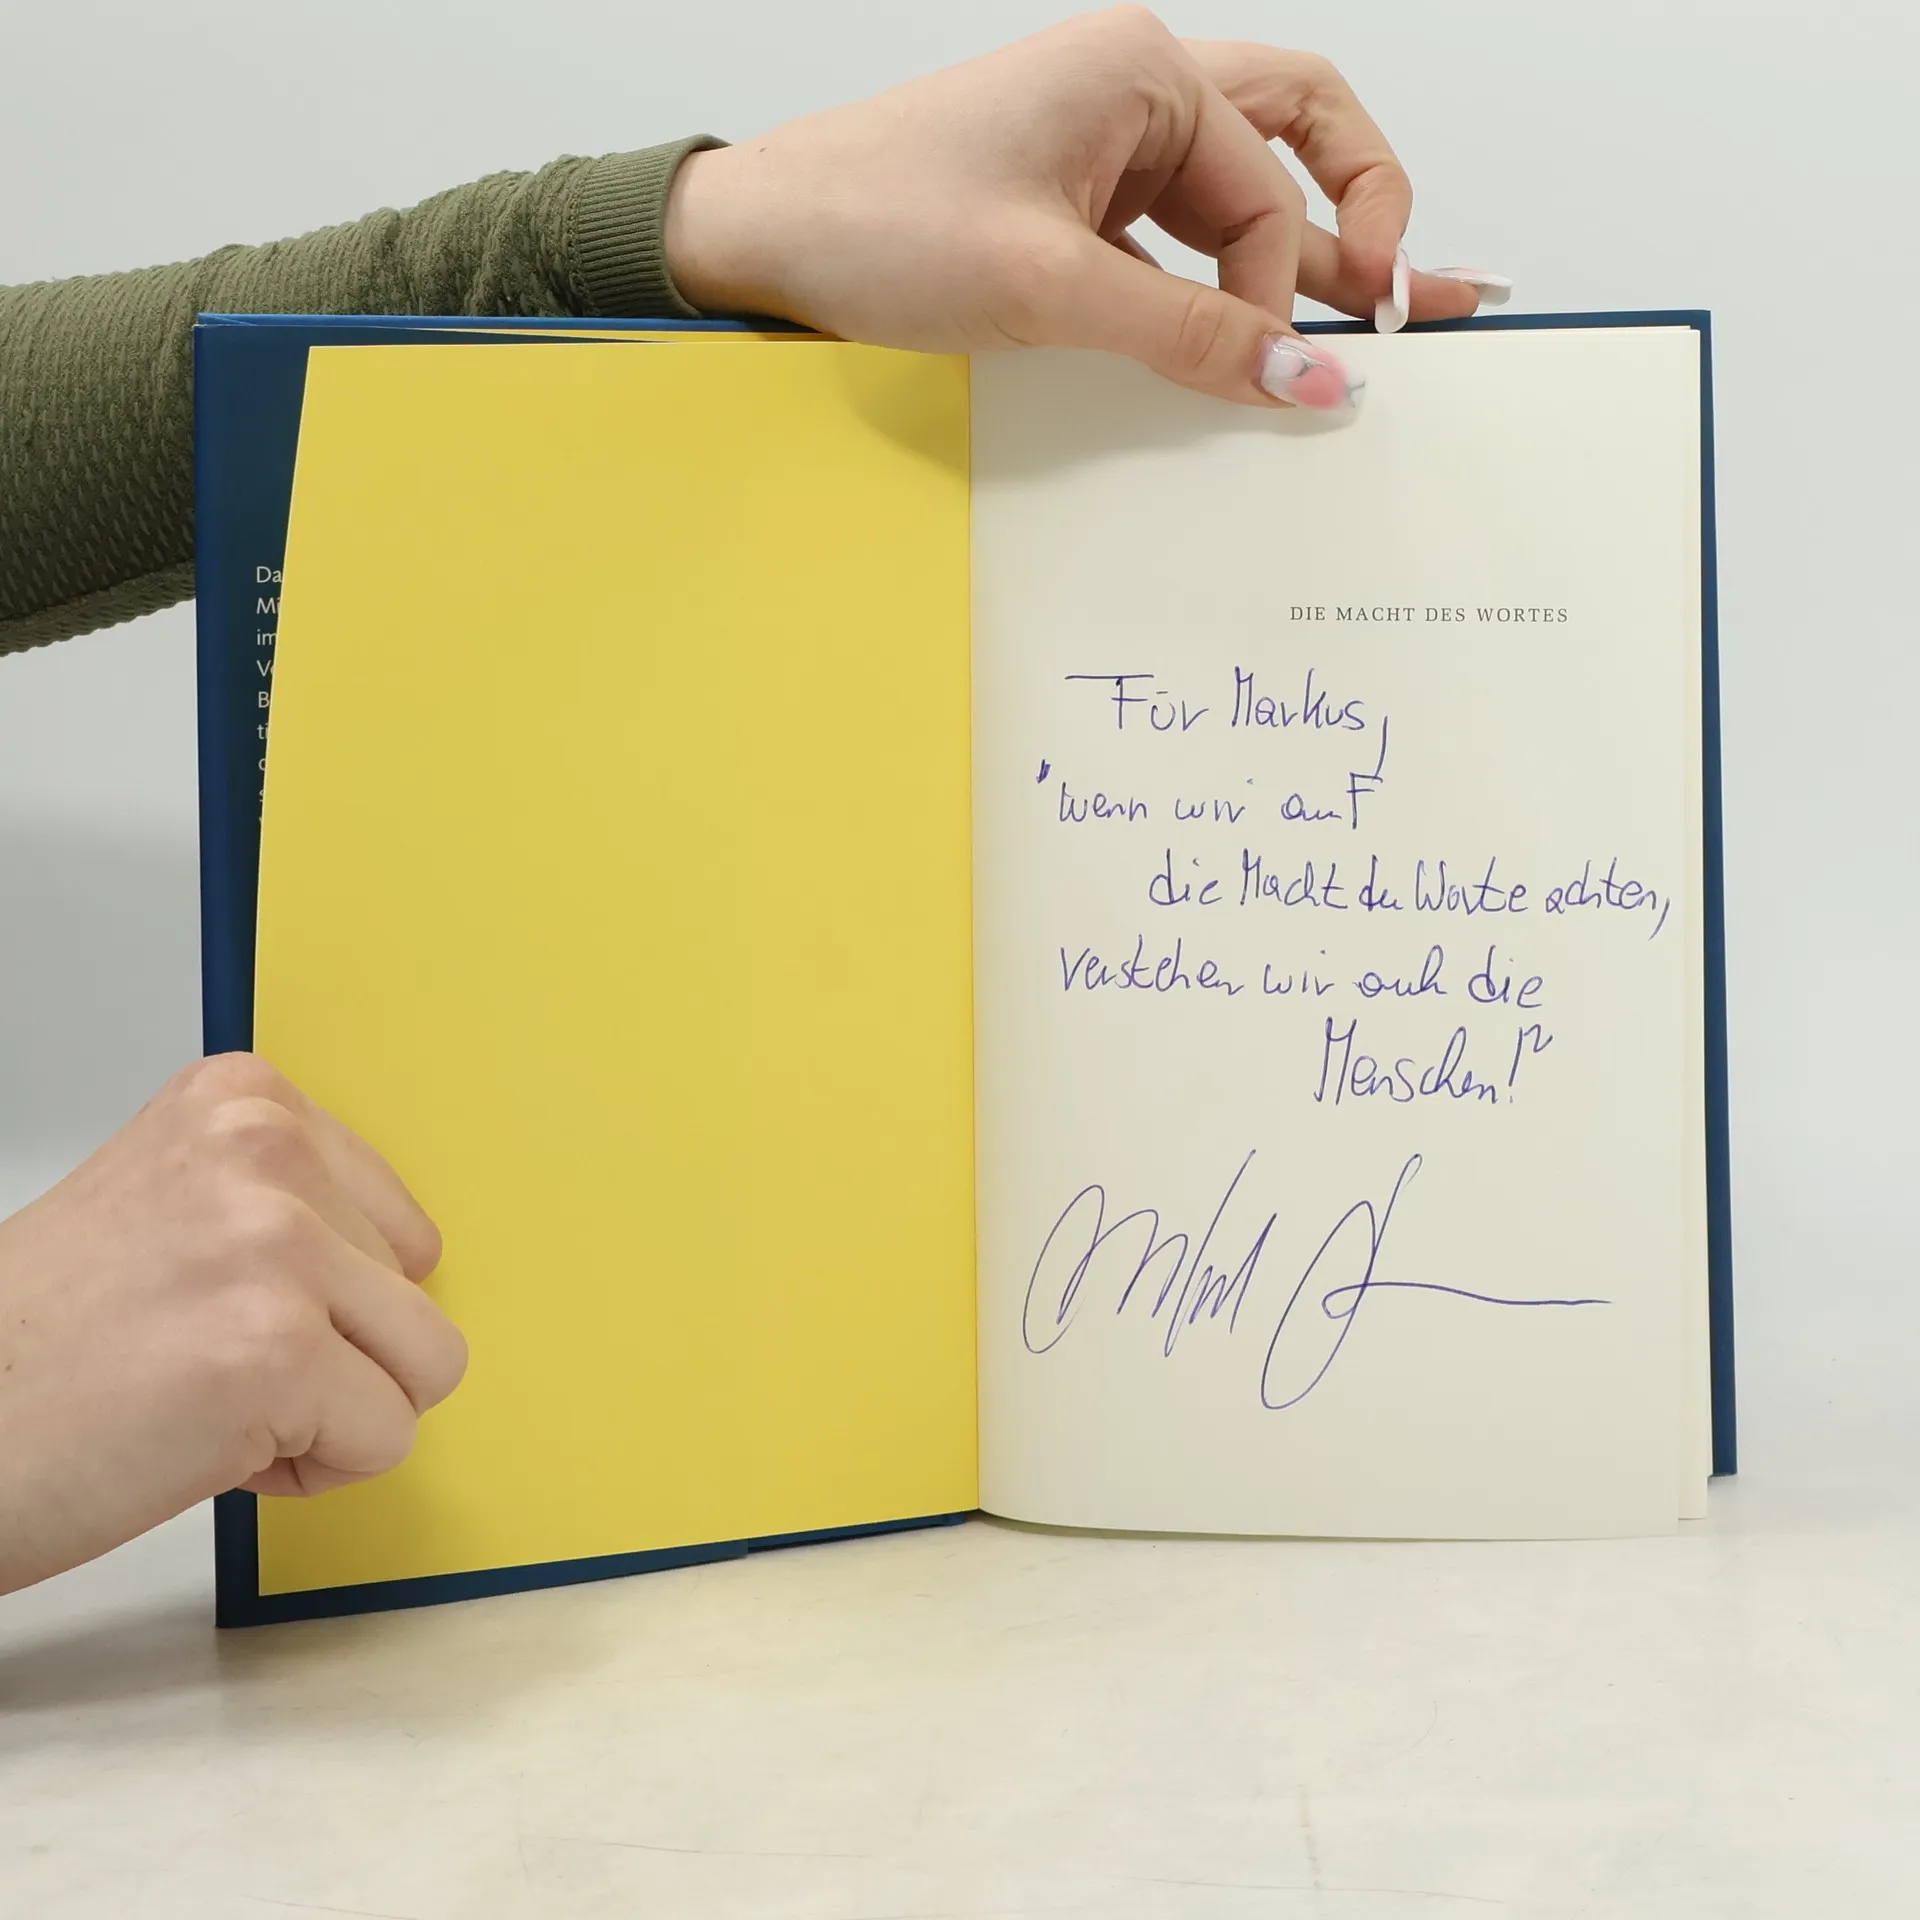 Da
Mi
im
Ve
B
ti
DIE MACHT DES WORTES
Für Markus,
"wenn wir auf
die Macht der Worte achten,
verstehen wir auch die
Menschen!"